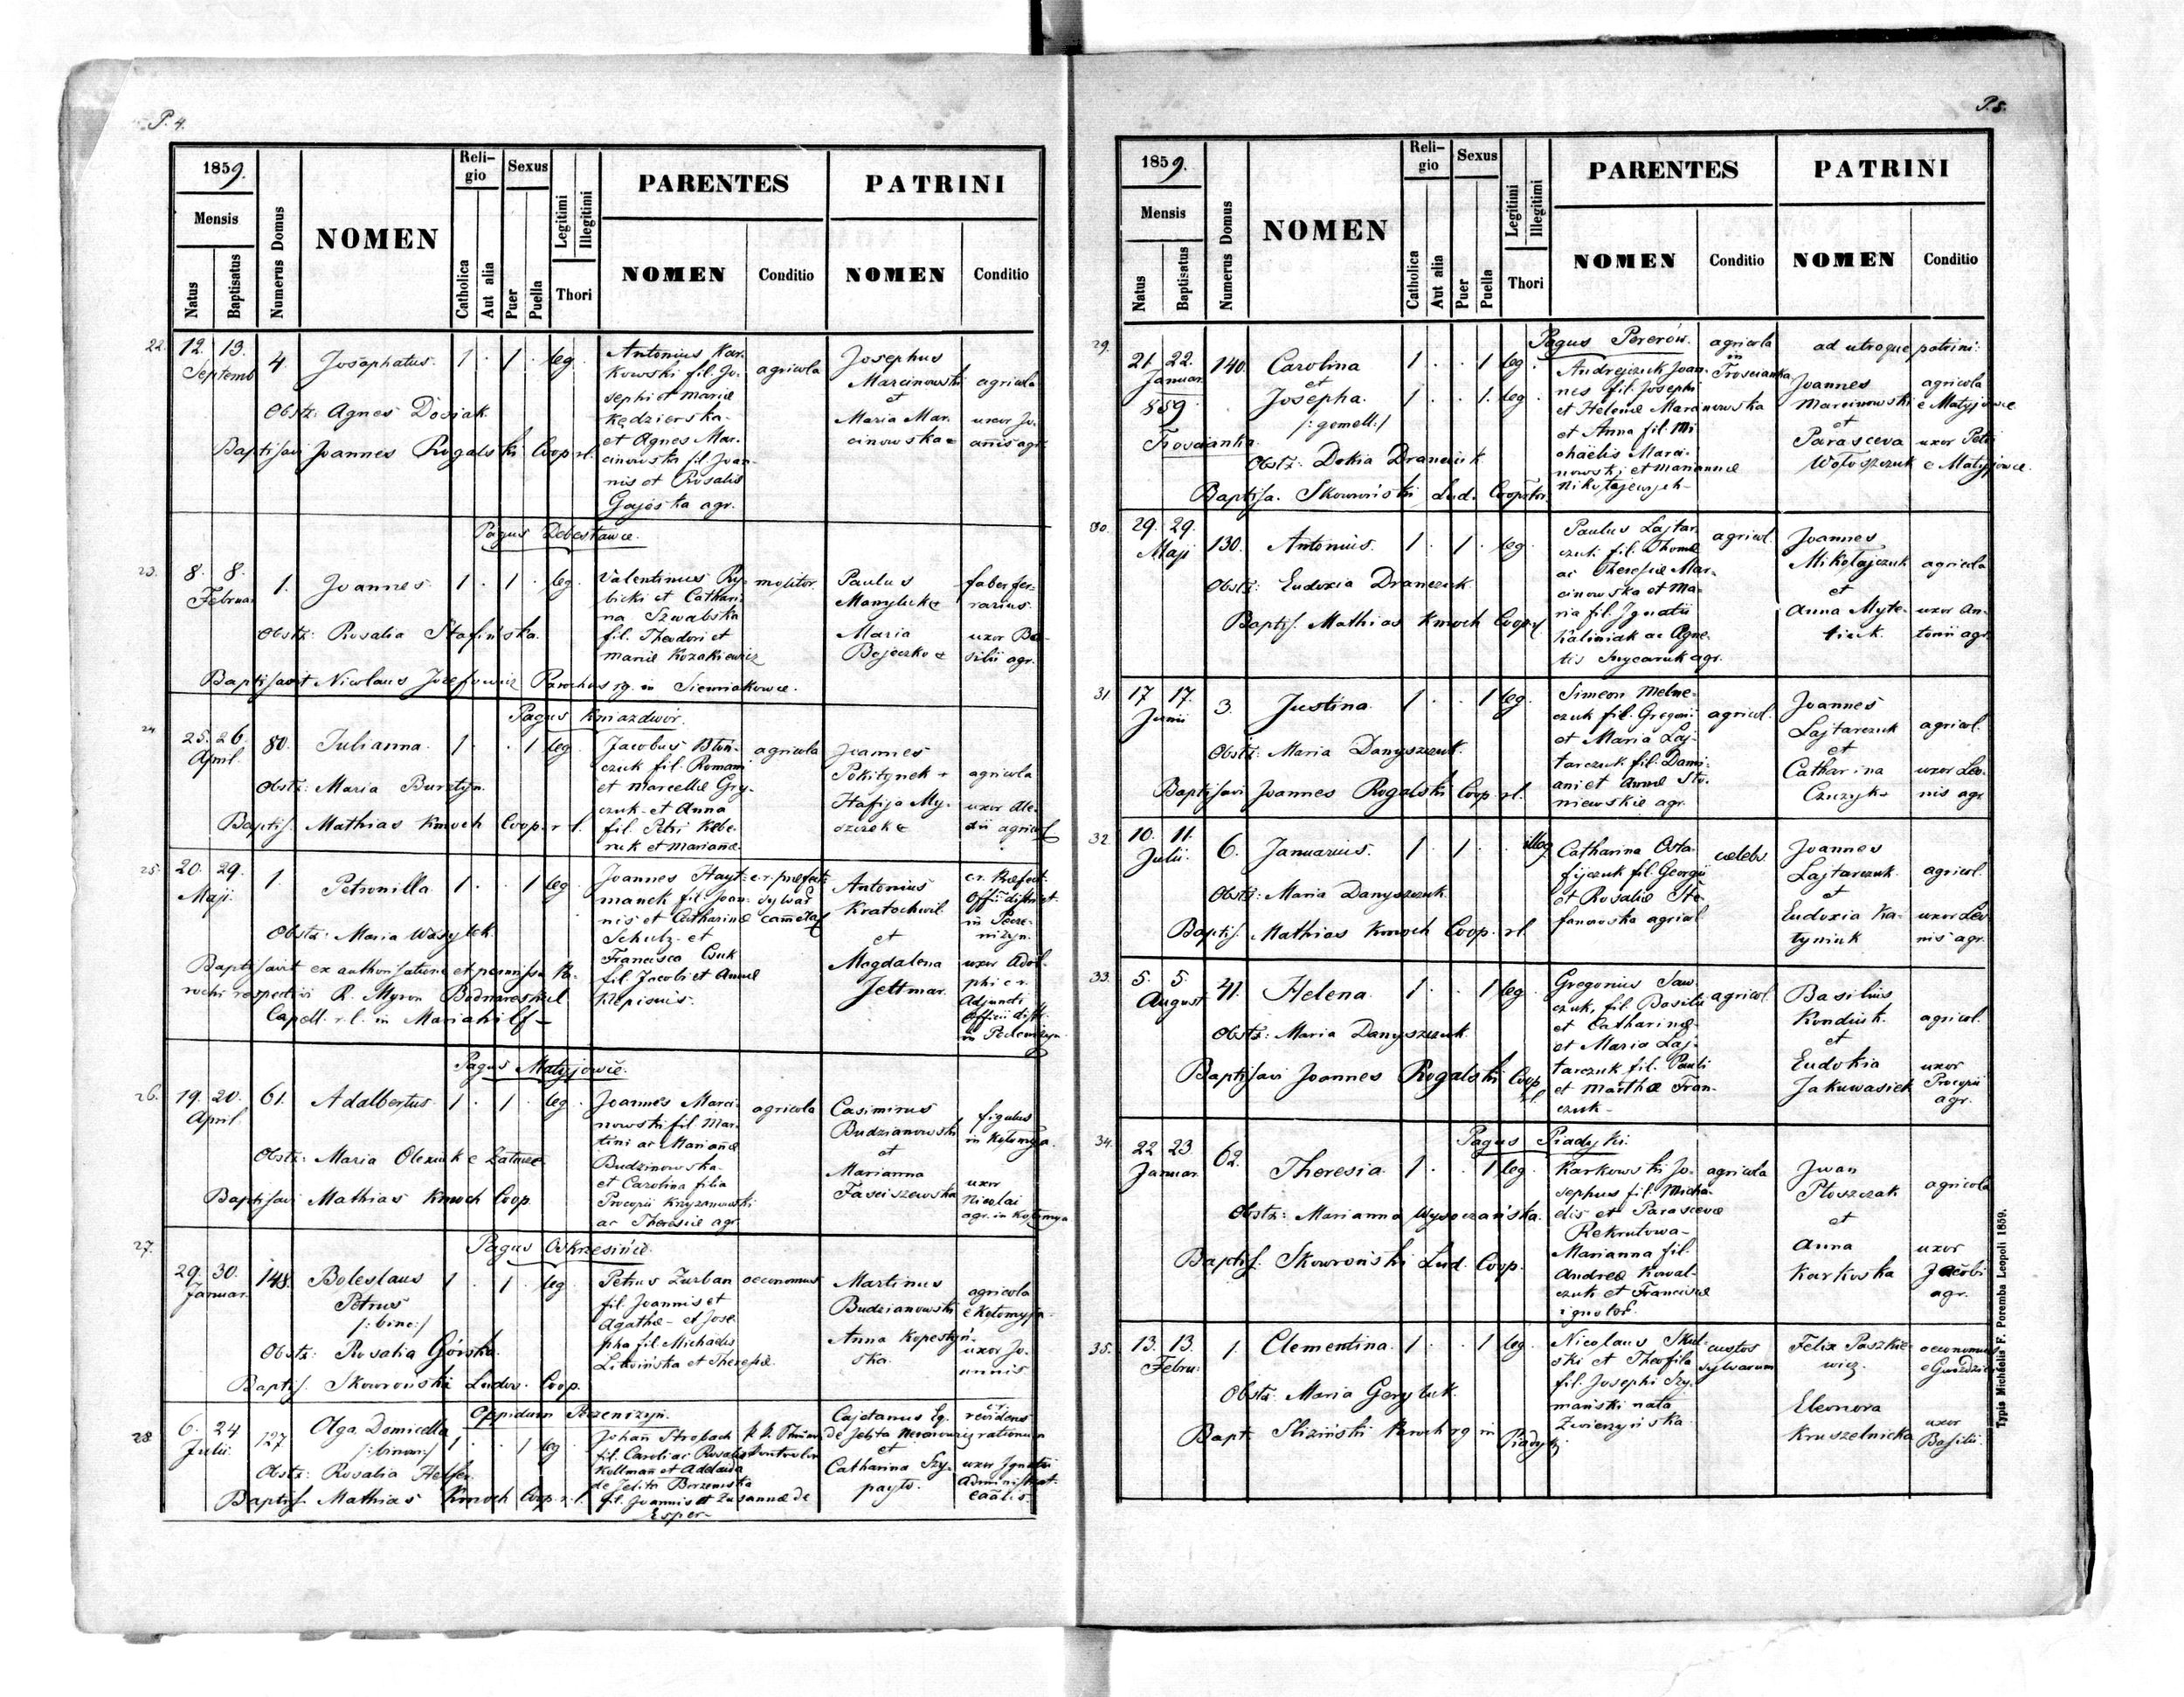 P. 4.
1859.
Mensis
Natus
Baptisatus
Numerus Domus
NOMEN
Reli-
gio
Catholica
Aut alia
Sexus
Puer
Puella
Legitimi
Illegitimi
Thori
PARENTES
NOMEN
Conditio
PATRINI
NOMEN
Conditio
22. 12. 13. 4. Josaphatus. 1 . 1 . leg.
Septemb
Obstz: Agnes Dosiak.
Baptisavi Joannes Rogalski Coop. rl.
Antonius Kar-
kowski fil. Jo-
sephi et Mariæ
Kędzierska.
et Agnes Mar-
cinowska fil. Joan-
nis et Rosaliæ
Gajoska agr.
agricola
Josephus
Marcinowski
et
Maria Mar-
cinowska
agricola
uxor Jo-
annis agr.
Pagus Debesławce.
23. 8. 8. 1. Joannes. 1 . 1 . leg.
Februar
Obstz: Rosalia Stafińska.
Baptisavit Nicolaus Jozefowicz Parochus rg. in Siemiakowce.
Valentinus Ry-
bicki et Cathari-
na Szwabska
fil. Theodori et
Mariæ Kozakiewicz
molitor.
Paulus
Manyluk
Maria
Bojeczko
faber fer-
rarius.
uxor Ba-
silii agr.
Pagus Kniazdwór.
24 25. 26. 80. Julianna. 1 . . 1 leg.
April.
Obstz: Maria Bursztyn.
Baptis. Mathias Kmoch Coop. r. l.
Jacobus Błon-
czuk fil. Romani
et Marcellæ Gry-
czuk. et Anna
fil. Petri Kebe-
ruk et Mariañæ.
agricola
Joannes
Pokitynek
Hafija My-
szczek
agricola
uxor Ale-
xii agricol
25. 20. 29. 1. Petronilla. 1 . . 1 leg.
Maji
Obstz: Maria Wasylek.
Baptisavit ex authorisatione et permissa Pa-
rochi respectivi R. Myron Bodnareskul
Capell. r. l. in Mariahilf
Joannes Hayt-
manek fil. Joan-
nis et Catharinæ
Schulz. et
Francisca Csuk
fil. Jacobi et Annæ
Krepisnis.
c. r. præfect.
sylvar
cameral
Antonius
Kratochwil
et
Magdalena
Jettmar.
c. r. Præfect.
Offii district.
in Pecze-
niżyn.
uxor Adol-
phi c. r.
Adjuncti
Officii distr.
in Peczeniżyn.
Pagus Matyjowce.
26. 19. 20. 61. Adalbertus. 1 . 1 . leg.
April.
Obstz: Maria Olexiuk e Zatucze.
Baptisavi Mathias Kmoch Coop.
Joannes Marci-
nowski fil. Mar-
tini ac Mariañæ
Budzinowska.
et Carolina filia
Procopii Krzyzanowski
ac Theresiæ agr.
agricola
Casimirus
Budzianowski
et
Marianna
Fasciszewska
figulus
in Kołomyja.
uxor
Nicolai
agr. in Kołomyja
27. Pagus Oskrzesińce.
29. 30. 148. Boleslaus 1 . 1 . leg.
Januar. Petrus
/:bino:/
Obstz: Rosalia Górska.
Baptis. Skoworoński Ludov. Coop.
Petrus Zurban
fil. Joannis et
Agathæ - et Jose-
pha fil. Michaelis
Litwińska et Theresiæ.
oeconomus
Martinus
Budzianowski
Anna Kopestyń-
ska.
agricola
e Kołomyja.
uxor Jo-
annis
Oppidum Peczeniżyn.
28 6. 24 127 Olga Domicella 1 . . 1 leg
Julii. /:binom:/
Obstz: Rosalia Helfer.
Baptis. Mathias Kmoch Coop. r. l.
Johañ Strobach
fil. Caroli ac Rosaliæ
Kollmañ et Adelaida
de Jelita Borzemska
fil. Joannis et Zusannæ de
Esper
Controlor
Cajetanus Eq.
et
Catharina Szy-
payło.
c. r.
revidens
rationum
uxor Ignatii
Administrat.
P. 5.
1859.
Mensis
Natus
Baptisatus
Numerus Domus
NOMEN
Reli-
gio
Catholica
Aut alia
Sexus
Puer
Puella
Legitimi
Illegitimi
Thori
PARENTES
NOMEN
Conditio
PATRINI
NOMEN
Conditio
Pagus Pererów.
29. 21. 22. 140. Carolina 1 . . 1 leg.
Januar et
859 Josepha. 1 . . 1. leg.
Troscianka. /:gemell:/
Obstz: Dokia Dranczuk
Baptisa. Skoworoński Lud. Coopstr.
Andrejczuk Joan-
nes fil. Josephi
et Helenæ Marcinowska
et Anna fil. Mi-
chaelis Marci-
nowski et Mariannæ
Nikołajewych
agricola
in
Troscianka.
ad utroque patrini:
Joannes
Marcinowski
et
Parasceva
Wołoszczuk
agricola
e Matyjowce
uxor Petri
e Matyjowce.
30. 29. 29. 130. Antonius. 1 . 1 . leg.
Maji
Obstz: Eudoxia Dranczuk.
Baptis. Mathias Kmoch Coop. rl.
Paulus Lajtar-
czuk fil. Thomæ
ac Theresiæ Mar-
cinowska et Ma-
ria fil. Ignatii
Kaliniak ac Agne-
tis agr.
agricol.
Joannes
Mikołajczuk
et
Anna Myte-
agricola
uxor An-
tonii agr.
31. 17 17. 3. Justina. 1 . . 1 leg.
Junii
Obstz: Maria Danyszczuk.
Baptisavi Joannes Rogalski Coop. rl.
Simeon Melne-
czuk fil. Gregorii
et Maria Laj-
tarczuk fil. Dami-
ani et Annæ Sto-
niewskie agr.
agricol.
Joannes
Lajtarczuk
et
Catharina
Czuzyk
agricol.
uxor Leo-
nis agr
32. 10. 11. 6. Januarius. 1 . 1 . . illeg
Julii.
Obstz: Maria Danyszczuk.
Baptis. Mathias Kmoch Coop. rl.
Catharina Osta-
fijczuk fil. Georgii
et Rosaliæ Ste-
fanowska agricol
celebs.
Joannes
Lajtarczuk.
et
Eudoxia Ka-
tyniuk
agricol.
uxor Leo-
nis agr.
33. 5. 5. 41. Helena. 1 . . 1 leg
August
Obstz: Maria Danyszczuk.
Baptisavi Joannes Rogalski Coop. rl.
Gregorius Saw-
czuk, fil. Basilii
et Catharinæ
et Maria Laj-
tarczuk fil. Pauli
et Marthæ Fran-
czuk
agricol.
Basilius
Kondiuk.
et
Eudokia
Jakuwasiek
agricol.
uxor
Procopii
agr.
Pagus Piadyki.
34. 22 23. 62. Theresia. 1 . . 1 leg.
Januar.
Obstz: Marianna Wysoczańska.
Baptis. Skoworoński Lud. Coop.
Karkowski Jo-
sephus fil. Micha-
elis et Parascevæ
Rekrutowa
Marianna fil.
Andreæ Kowal-
czuk et Franciscæ
ignotæ.
agricola
Jwan
Płoszczak
et
Anna
Karkoska
agricola
uxor
Jacobi
agr.
35. 13. 13. 1. Clementina. 1 . . 1 leg.
Febru.
Obstz. Maria Geryluk.
Bapt. Sliziński Paroch rg in Piadyki.
Nicolaus Skul-
ski et Theofila
fil. Josephi Szy-
mański nata
Zwierzyńska
custos
sylvarum
Felix Paszkie-
wicz.
Eleonora
Kruszelnicka
oeconomus
e Gwoździec
uxor
Basilii.
Typis Michaelis F. Poremba Leopoli 1859.